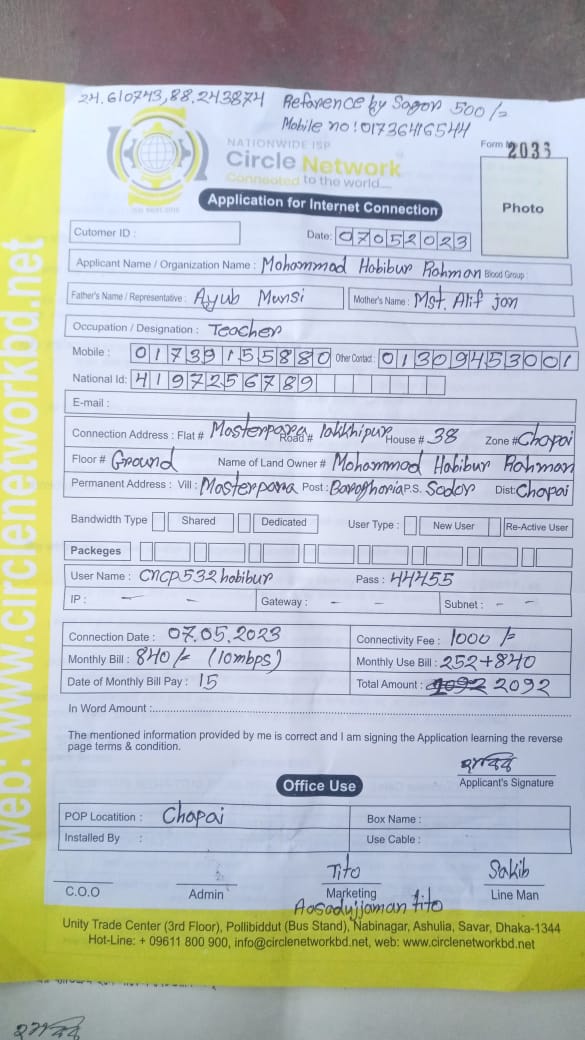 24.610743,88.243874 Reference by Sagor 500/=
Mobile no: 01736416544
NATIONWIDE ISP
Circle Network
Connected to the world....
Form No 2033
Application for Internet Connection
Photo
Cutomer ID :
Date: 07052023
Applicant Name / Organization Name : Mohammad Habibur Rahman Blood Group :
Father's Name / Representative : Ayub Munsi
Mother's Name : Mst. Alif jan
Occupation / Designation : Teacher
Mobile : 01739155880 Other Contact : 01309453001
National Id: 4197256789
E-mail :
Connection Address : Flat # Masterpara Road # lakkhipur House # 38 Zone # Chapai
Floor # Ground Name of Land Owner # Mohammad Habibur Rahman
Permanent Address : Vill : Masterpara Post : Baroghoria P.S. Sador Dist: Chapai
Bandwidth Type Shared Dedicated User Type : New User Re-Active User
Packeges
User Name : cncp532habibur Pass : 44455
IP : – – Gateway : – – Subnet : – –
Connection Date : 07.05.2023 Connectivity Fee : 1000/=
Monthly Bill : 840/= (10mbps) Monthly Use Bill : 252+840
Date of Monthly Bill Pay : 15 Total Amount : 2092
In Word Amount :
The mentioned information provided by me is correct and I am signing the Application learning the reverse
page terms & condition.
Applicant's Signature
Office Use
POP Locatition : Chapai Box Name :
Installed By : Use Cable :
Tito Sakib
C.O.O Admin Marketing Line Man
Aosadujjaman tito
Unity Trade Center (3rd Floor), Pollibiddut (Bus Stand), Nabinagar, Ashulia, Savar, Dhaka-1344
Hot-Line: + 09611 800 900, info@circlenetworkbd.net, web: www.circlenetworkbd.net
web: www.circlenetworkbd.net